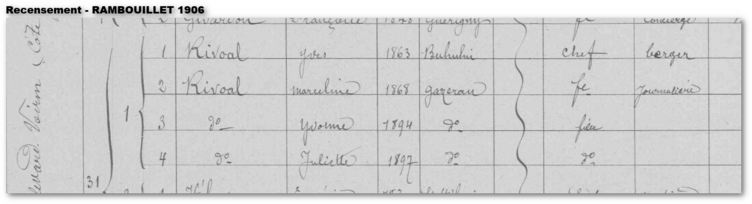 Recensement - RAMBOUILLET 1906
Françoise Guérigny fe Concierge
1 Rivoal Yves 1863 Buhulien chef berger
2 Rivoal Marceline 1868 Gazeran fe Journalière
1
3 do Yvonne 1894 do fille
4 do Juliette 1897 do do
31